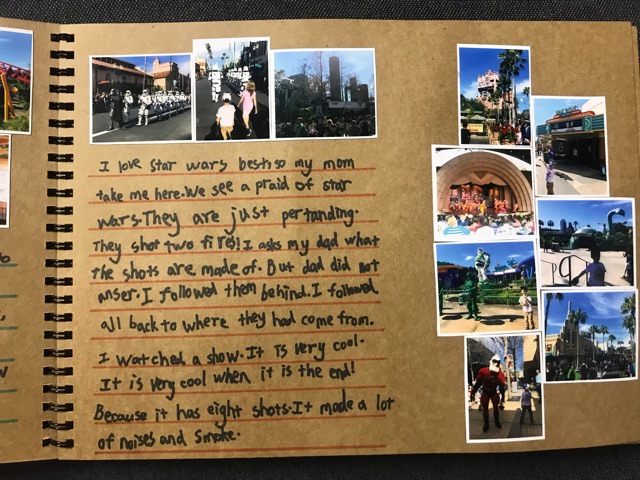 I love star wars best.so my mom
take me here.We see a praid of star
wars.They are just pertanding.
They shot two fires!I asks my dad what
the shots are made of. But dad did not
anser.I followed them behind.I followed
all back to where they had come from.
I watched a show.It is very cool.
It is very cool when it is the end!
Because it has eight shots.It made a lot
of noises and smoke.